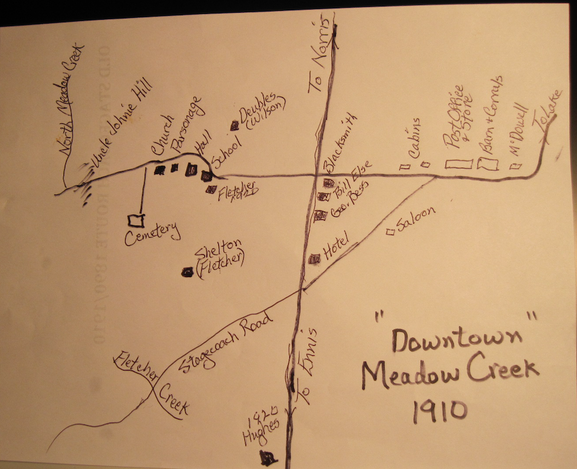 North Meadow Creek
Uncle Johnie Hill
Church
Parsonage
Hall
School
Fletcher
Deubles
(Wilson)
To Norris
Blacksmith
Bill Else
Geo. Bess
Cabins
Post Office
& Store
Barn & Corrals
McDowell
To Lake
Cemetery
Shelton
(Fletcher)
Hotel
Saloon
Stagecoach Road
Fletcher
Creek
To Ennis
1920
Hughes
"Downtown"
Meadow Creek
1910